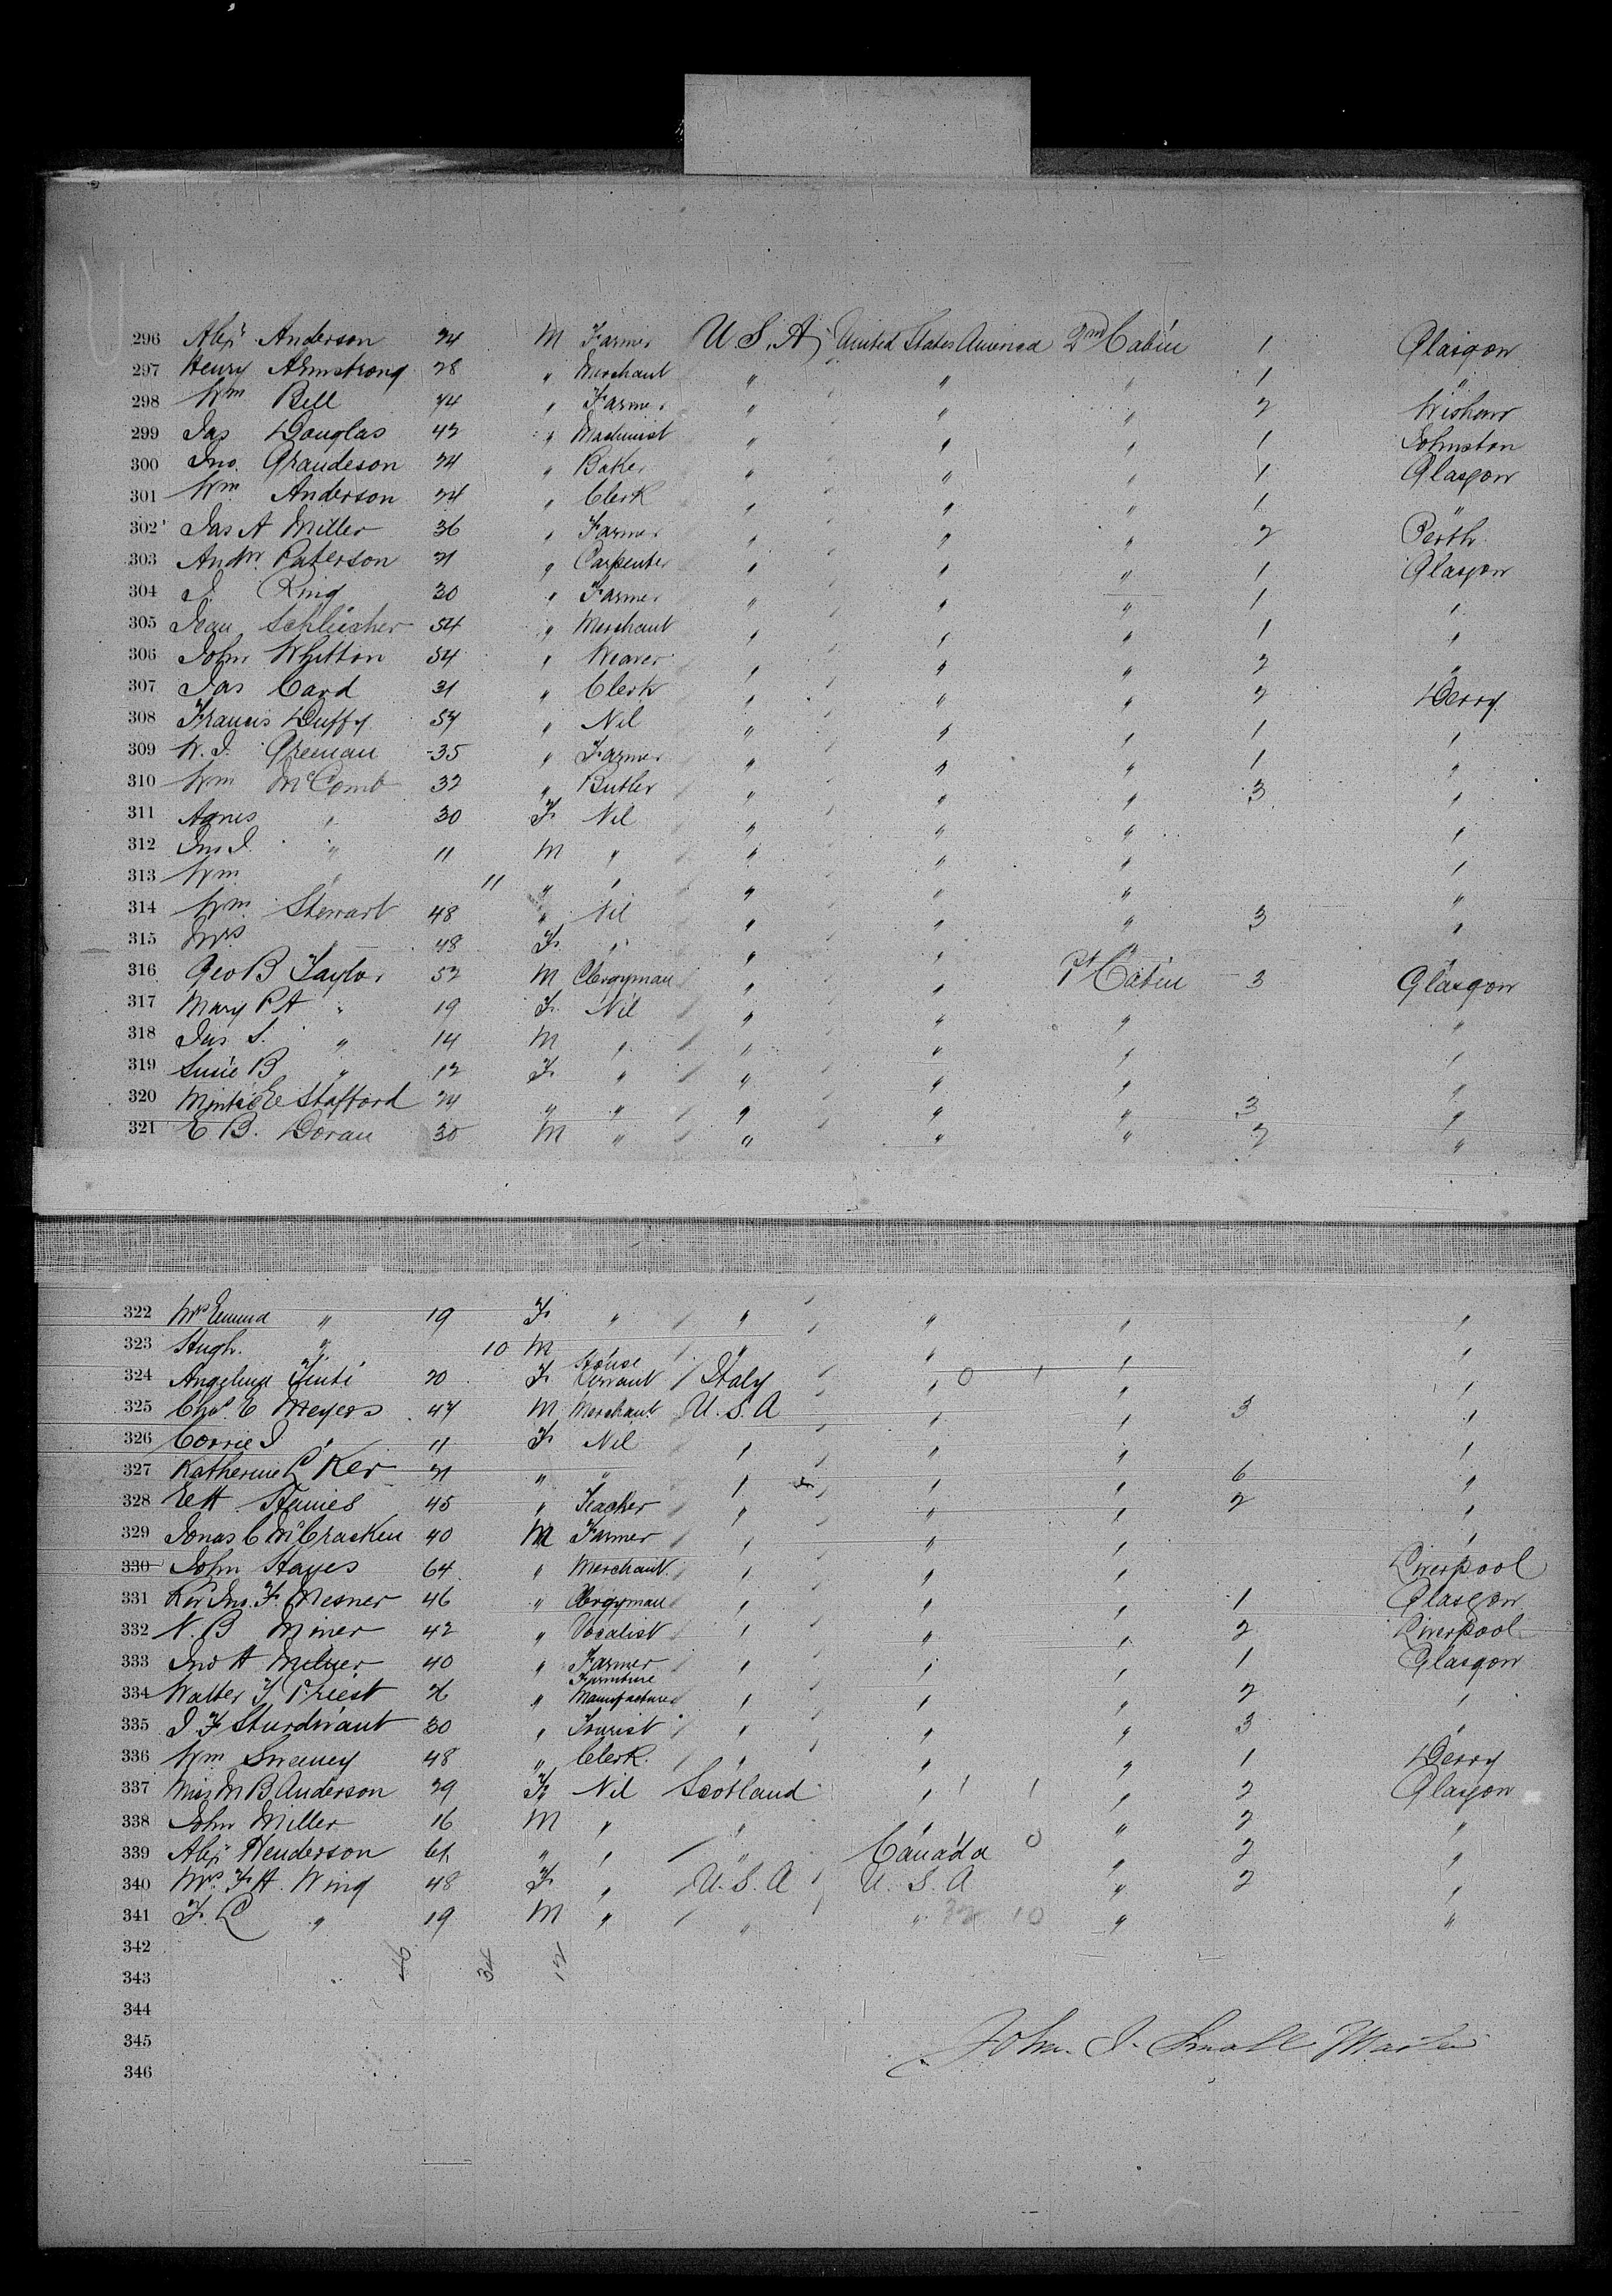 296 Alexr Anderson 24 M Farmer U S. A United States America 2nd Cabin 1 Glasgow
297 Henry Armstrong 28 " Merchant " " " 1 "
298 Wm Bell 44 " Farmer " " " 2 Wishaw
299 Jas Douglas 42 " Machinist " " " 1 Johnston
300 Jno. Grandeson 24 " Baker " " " 1 Glasgow
301 Wm Anderson 24 " Clerk " " " 1 "
302 Jas A Miller 36 " Farmer " " " 2 Perth
303 Andw. Paterson 21 " Carpenter " " " 1 Glasgow
304 J. Ring 30 " Farmer " " " 1 "
305 Jean Schluscher 54 " Merchant " " " 1 "
306 John Whitton 54 " Weaver " " " 2 "
307 Jas Card 31 " Clerk " " " 2 Derry
308 Francis Duffy 57 " Nil " " " 1 "
309 W. J. Greenan 35 " Farmer " " " 1 "
310 Wm McComb 32 " Butler " " " 3 "
311 Agnes " 30 F. Nil " " " "
312 Jno J. " 11 M " " " " "
313 Wm " 11 " " " " " "
314 Wm Stewart 48 " Nil " " " 3 "
315 Mrs " 48 F. " " " " "
316 Geo B Taylor 52 M Clergyman " " 1st Cabin 3 Glasgow
317 Mary P A " 19 F. Nil " " " "
318 Jas S. " 14 M " " " " "
319 Susie B " 12 F. " " " " "
320 E Stafford 24 " " " " " 3 "
321 E B. Doran 30 M " " " " 2 "
322 Mrs Emma " 19 F. " " " " "
323 Hugh. " 10 M " " " " "
324 Angelina Tinti 20 F. House Servant Italy " 0 " "
325 Chas. E Meyers 47 M Merchant U. S. A " " 3 "
326 Corrie J " 11 F. Nil " " " "
327 Katherine L Ker 21 " " " " " 6 "
328 Teacher 45 " " " " 2 "
329 Jonas C McCracken 40 M Farmer " " " "
330 John Hayes 64 " Merchant. " " " Liverpool
331 Rev Jno. F. Mesner 46 " Clergyman " " " 1 Glasgow
332 N. B Miner 42 " Vocalist " " " 2 Liverpool
333 Jno A Milner 40 " Farmer " " " 1 Glasgow
334 Walter J Priest 26 " Furniture Manufacturer " " " 2 "
335 J F Sturdivant 30 " Tourist " " " 3 "
336 Wm Sweeney 48 " Clerk. " " " 1 Derry
337 Miss M B Anderson 29 F. Nil Scotland " " 2 Glasgow
338 John Miller 16 M " " " " 2 "
339 Alexr Henderson 61 " " " Canada 0 " 2 "
340 Mrs F. A. Wing 48 F. " U. S. A U. S. A " 2 "
341 F. L " 19 M " " " 10 " "
342
343
344
345
346
John J. Small Master